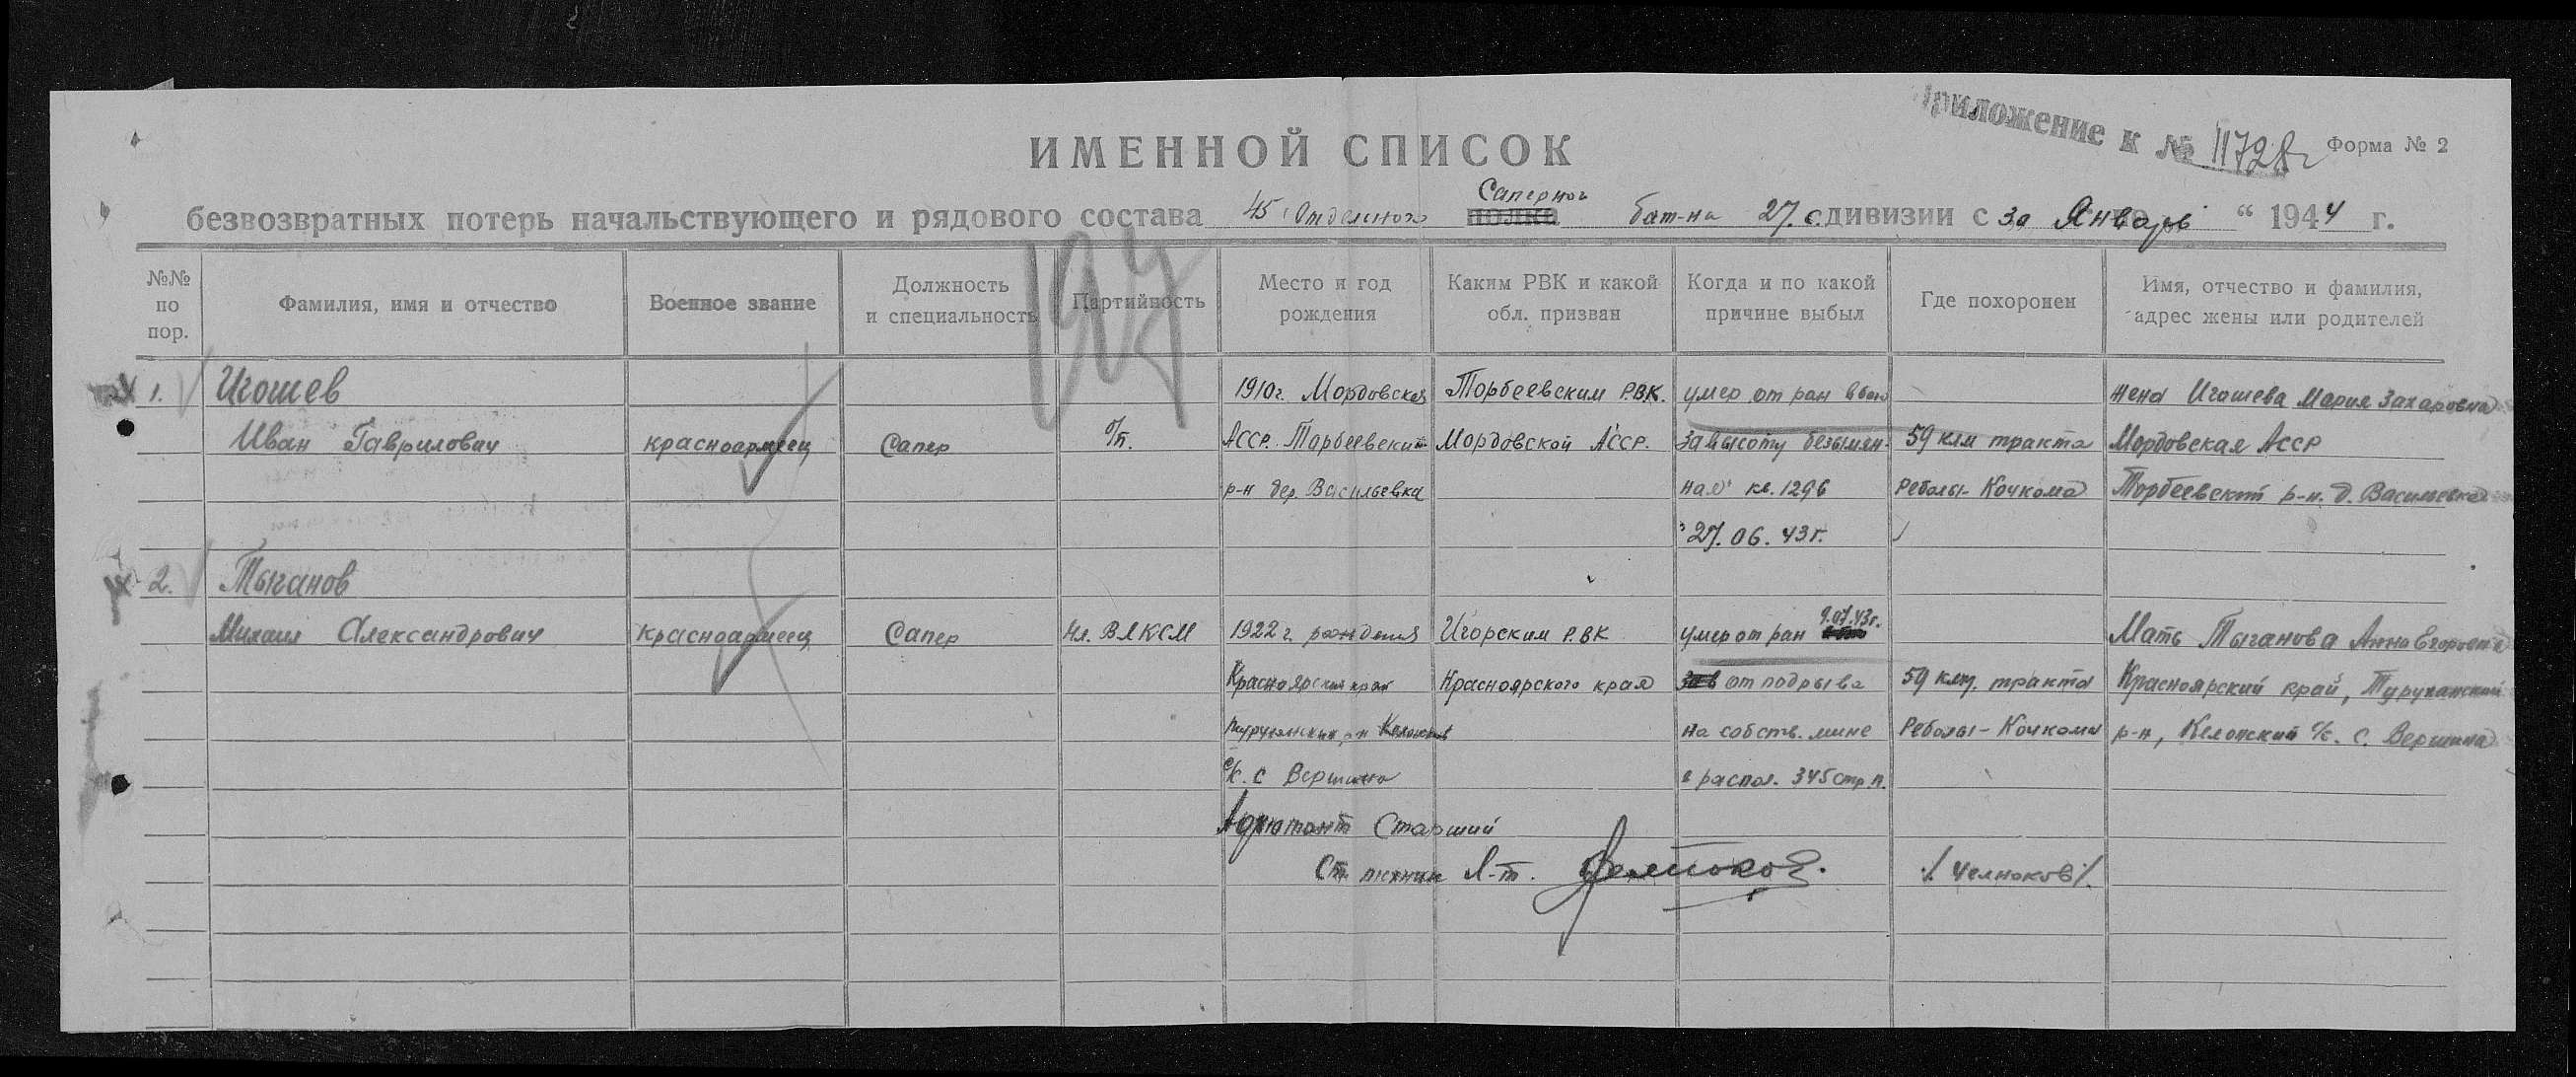 Приложение к № 11728с
Форма № 2
ИМЕННОЙ СПИСОК
безвозвратных потерь начальствующего и рядового состава 45 Отдельного полка Саперного бат-на 27 с.дивизии с за Январь “ 1944 г.
№№ по пор.
Фамилия, имя и отчество
Военное звание
Должность и специальность
Партийность
Место и год рождения
Каким РВК и какой обл. призван
Когда и по какой причине выбыл
Где похоронен
Имя, отчество и фамилия, адрес жены или родителей
1. Игошев 1910г. Мордовская Торбеевским РВК. умер от ран жена Игошева Мария Захаровна
Иван Гаврилович красноармеец Сапер б/п. АССР. Торбеевский Мордовской АССР. за высоту безымян- 59 клм тракта Мордовская АССР
р-н дер. Васильевка ная кв. 1296 Реболы-Кочкома Торбеевский р-н. д. Васильевка
27.06.43г.
2. Тыганов 9.07.43г.
Михаил Александрович Красноармеец Сапер Чл. ВЛКСМ 1922 г. рождения Игорским РВК умер от ран Мать Тыганова Анна Егоровна
Красноярский край Красноярского края от подрыва 59 клм. тракта Красноярский край, Туруханский
р-н на собств. мине Реболы-Кочкома р-н, Келопский с/с. с. Вершина
с/с. с Вершина в распол. 345 стр.п.
Адъютант Старший
Ст. техник Л-т. /Челноков/.
194